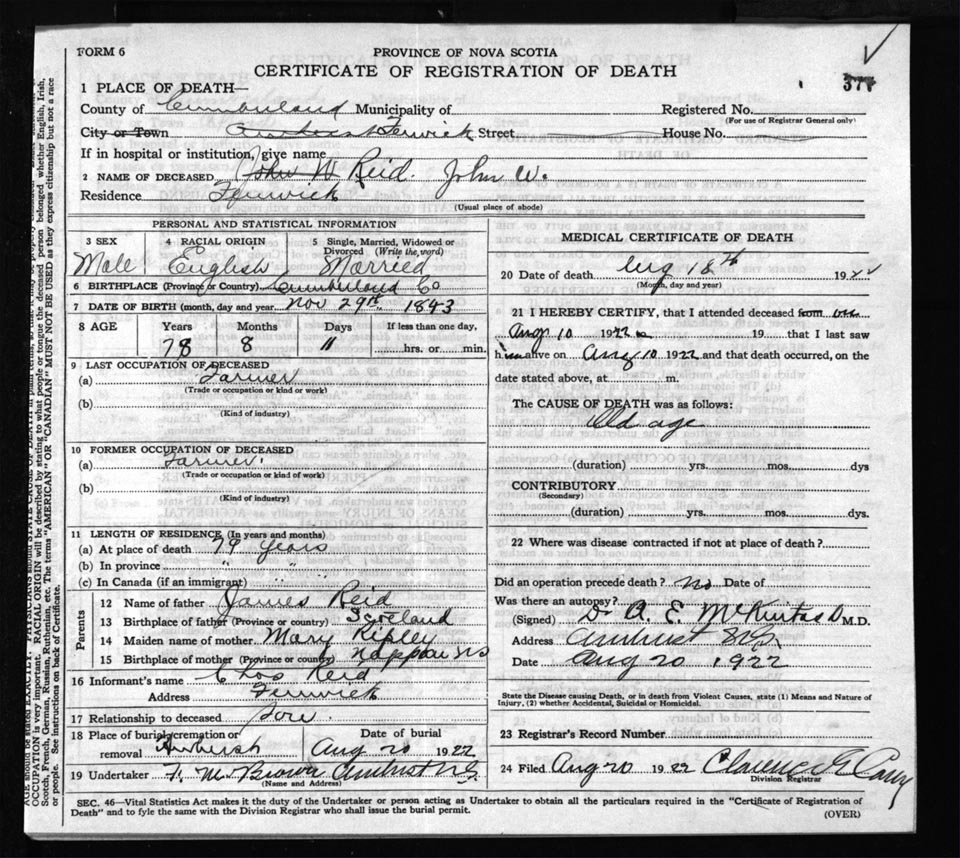 FORM 6
PROVINCE OF NOVA SCOTIA
CERTIFICATE OF REGISTRATION OF DEATH
377
1 PLACE OF DEATH—
County of Cumberland Municipality of
Registered No.
(For use of Registrar General only)
City or Town Fenwick Street House No.
If in hospital or institution, give name
2 NAME OF DECEASED John W Reid. John W.
Residence Fenwick
(Usual place of abode)
PERSONAL AND STATISTICAL INFORMATION
3 SEX 4 RACIAL ORIGIN 5 Single, Married, Widowed or Divorced (Write the word)
Male English Married
6 BIRTHPLACE (Province or Country) Cumberland Co
7 DATE OF BIRTH (month, day and year) Nov 29th 1843
8 AGE Years Months Days If less than one day,
78 8 11 hrs. or min.
9 LAST OCCUPATION OF DECEASED
(a) Farmer
(Trade or occupation or kind or work)
(b)
(Kind of industry)
10 FORMER OCCUPATION OF DECEASED
(a) Farmer.
(Trade or occupation or kind of work)
(b)
(Kind of industry)
11 LENGTH OF RESIDENCE (In years and months)
(a) At place of death 79 years
(b) In province " "
(c) In Canada (if an immigrant)
Parents
12 Name of father James Reid
13 Birthplace of father (Province or country) Scotland
14 Maiden name of mother Mary Ripley
15 Birthplace of mother (Province or country) Nappan NS
16 Informant's name Chas Reid
Address Fenwick
17 Relationship to deceased Son.
18 Place of burial, cremation or removal Amherst Date of burial Aug 20 1922
19 Undertaker F. M. Brown Amherst N.S.
(Name and Address)
MEDICAL CERTIFICATE OF DEATH
20 Date of death Aug 18th 1922
(Month, day and year)
21 I HEREBY CERTIFY, that I attended deceased from on
Aug 10 1922 19 that I last saw
him alive on Aug 10 1922 and that death occurred, on the
date stated above, at m.
The CAUSE OF DEATH was as follows:
Old age
(duration) yrs. mos. dys
CONTRIBUTORY
(Secondary)
(duration) yrs. mos. dys.
22 Where was disease contracted if not at place of death?
Did an operation precede death? No Date of
Was there an autopsy?
(Signed) Dr A. E. McKintosh M.D.
Address Amherst N.S.
Date Aug 20, 1922
State the Disease causing Death, or in death from Violent Causes, state (1) Means and Nature of
Injury, (2) whether Accidental, Suicidal or Homicidal.
23 Registrar's Record Number
24 Filed Aug 20 1922 Clarence
Division Registrar
SEC. 46—Vital Statistics Act makes it the duty of the Undertaker or person acting as Undertaker to obtain all the particulars required in the "Certificate of Registration of
Death" and to fyle the same with the Division Registrar who shall issue the burial permit.
(OVER)
OCCUPATION is very important. RACIAL ORIGIN will be described by stating to what people or tongue the deceased person belonged whether English, Irish,
Scotch, French, German, Russian, Ruthenian, etc. The terms "AMERICAN" OR "CANADIAN" MUST NOT BE USED as they express citizenship but not a race
or people. See instructions on back of Certificate.